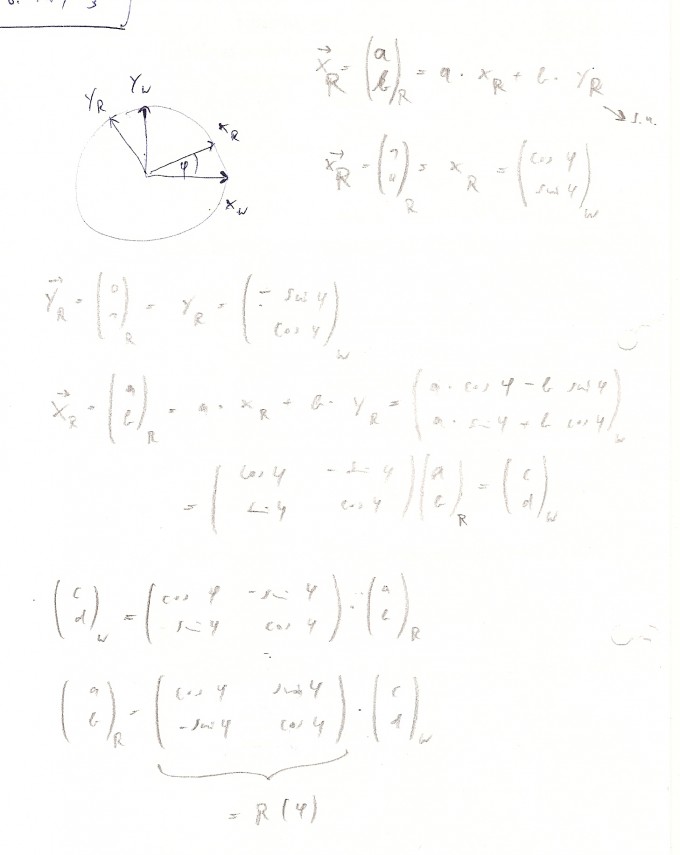 Y_R Y_W x_R φ x_W
\vec{x}_R = \begin{pmatrix} a \\ b \end{pmatrix}_R = a · x_R + b · y_R
→ s.u.
\vec{x}_R = \begin{pmatrix} 1 \\ 0 \end{pmatrix}_R = x_R = \begin{pmatrix} cos φ \\ sin φ \end{pmatrix}_W
\vec{y}_R = \begin{pmatrix} 0 \\ 1 \end{pmatrix}_R = y_R = \begin{pmatrix} - sin φ \\ cos φ \end{pmatrix}_W
\vec{x}_R = \begin{pmatrix} a \\ b \end{pmatrix}_R = a · x_R + b · y_R = \begin{pmatrix} a · cos φ - b sin φ \\ a · sin φ + b cos φ \end{pmatrix}_W
= \begin{pmatrix} cos φ & - sin φ \\ sin φ & cos φ \end{pmatrix} \begin{pmatrix} a \\ b \end{pmatrix}_R = \begin{pmatrix} c \\ d \end{pmatrix}_W
\begin{pmatrix} c \\ d \end{pmatrix}_W = \begin{pmatrix} cos φ & - sin φ \\ sin φ & cos φ \end{pmatrix} · \begin{pmatrix} a \\ b \end{pmatrix}_R
\begin{pmatrix} a \\ b \end{pmatrix}_R = \begin{pmatrix} cos φ & sin φ \\ - sin φ & cos φ \end{pmatrix} · \begin{pmatrix} c \\ d \end{pmatrix}_W
= R (φ)